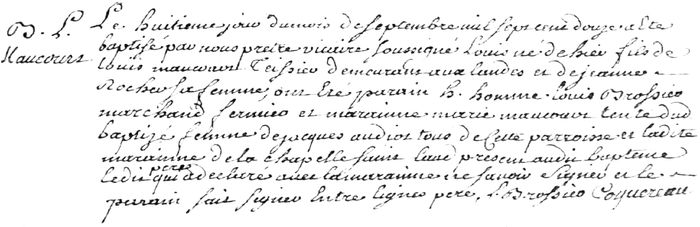 B. L.
Maucourt
Le huitieme jour du mois de septembre mil sept cent douze a ete
baptisé par nous pretre vicaire soussigné Louis né de hier fils de
Louis maucourt Tessier demeurant aux landes et de jeanne
Rocher sa femme, ont été parain h. homme Louis Brossier
marchand fermier et marainne marie maucourt tente dud
baptizé femme de jacques audiot tous de cette parroisse et ladite
marainne de la chapelle saint laud present audit bapteme
ledit pere qui a declaré avec la marainne ne savoir signer et le
parain fait signer Entre lignes pere. L Brossier Coquereau